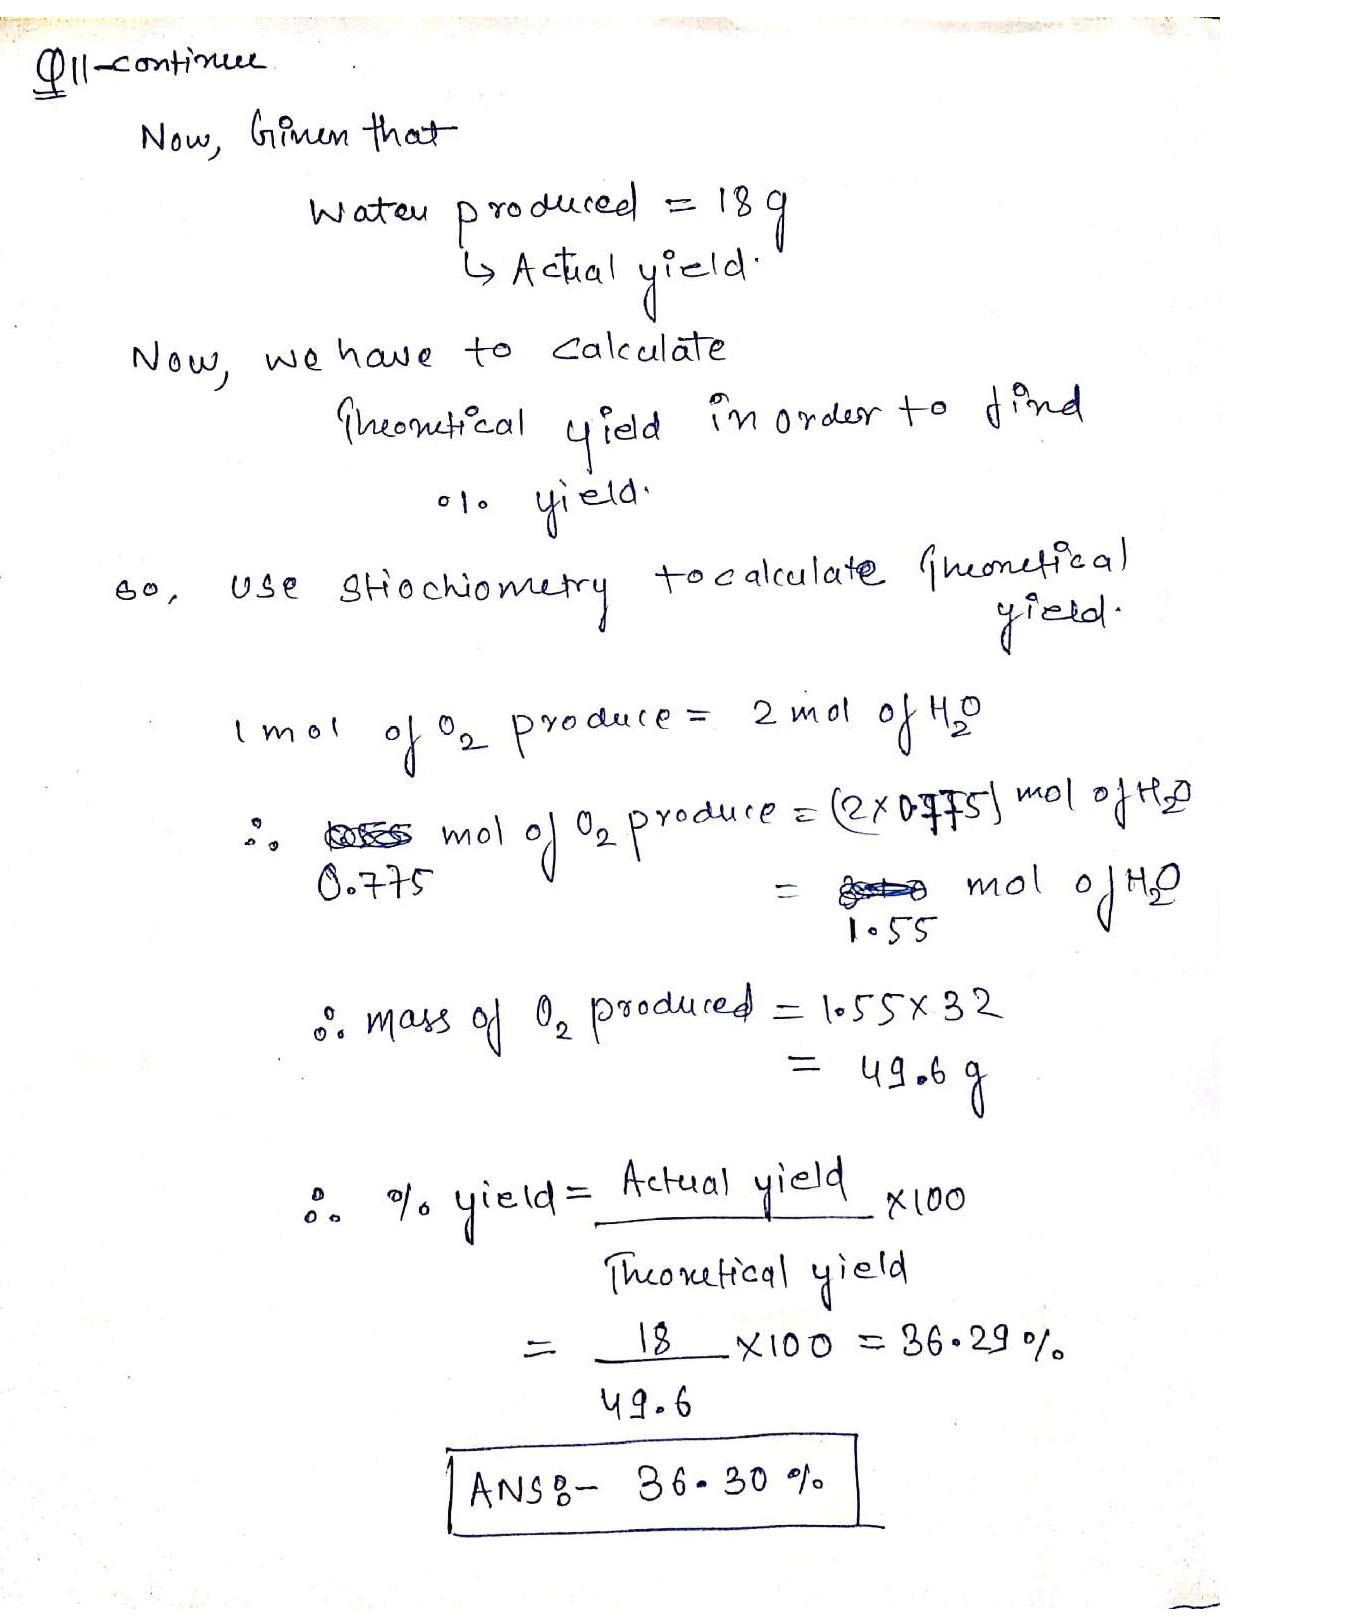 Q11-continue
Now, Given that
Water produced = 18 g
↳ Actual yield.
Now, we have to calculate
Theoretical yield in order to find
% yield.
so, use stiochiometry to calculate Theoretical
yield.
1 mol of O2 produce = 2 mol of H2O
∴ mol of O2 produce = (2×0.775) mol of H2O
0.775
= mol of H2O
1.55
∴ mass of O2 produced = 1.55×32
= 49.6 g
∴ % yield = Actual yield ×100
Theoretical yield
= 18 ×100 = 36.29 %
49.6
ANS:- 36.30 %